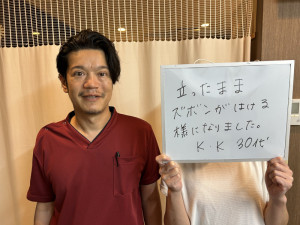 立ったまま
ズボンがはける
様になりました。
K K 30代